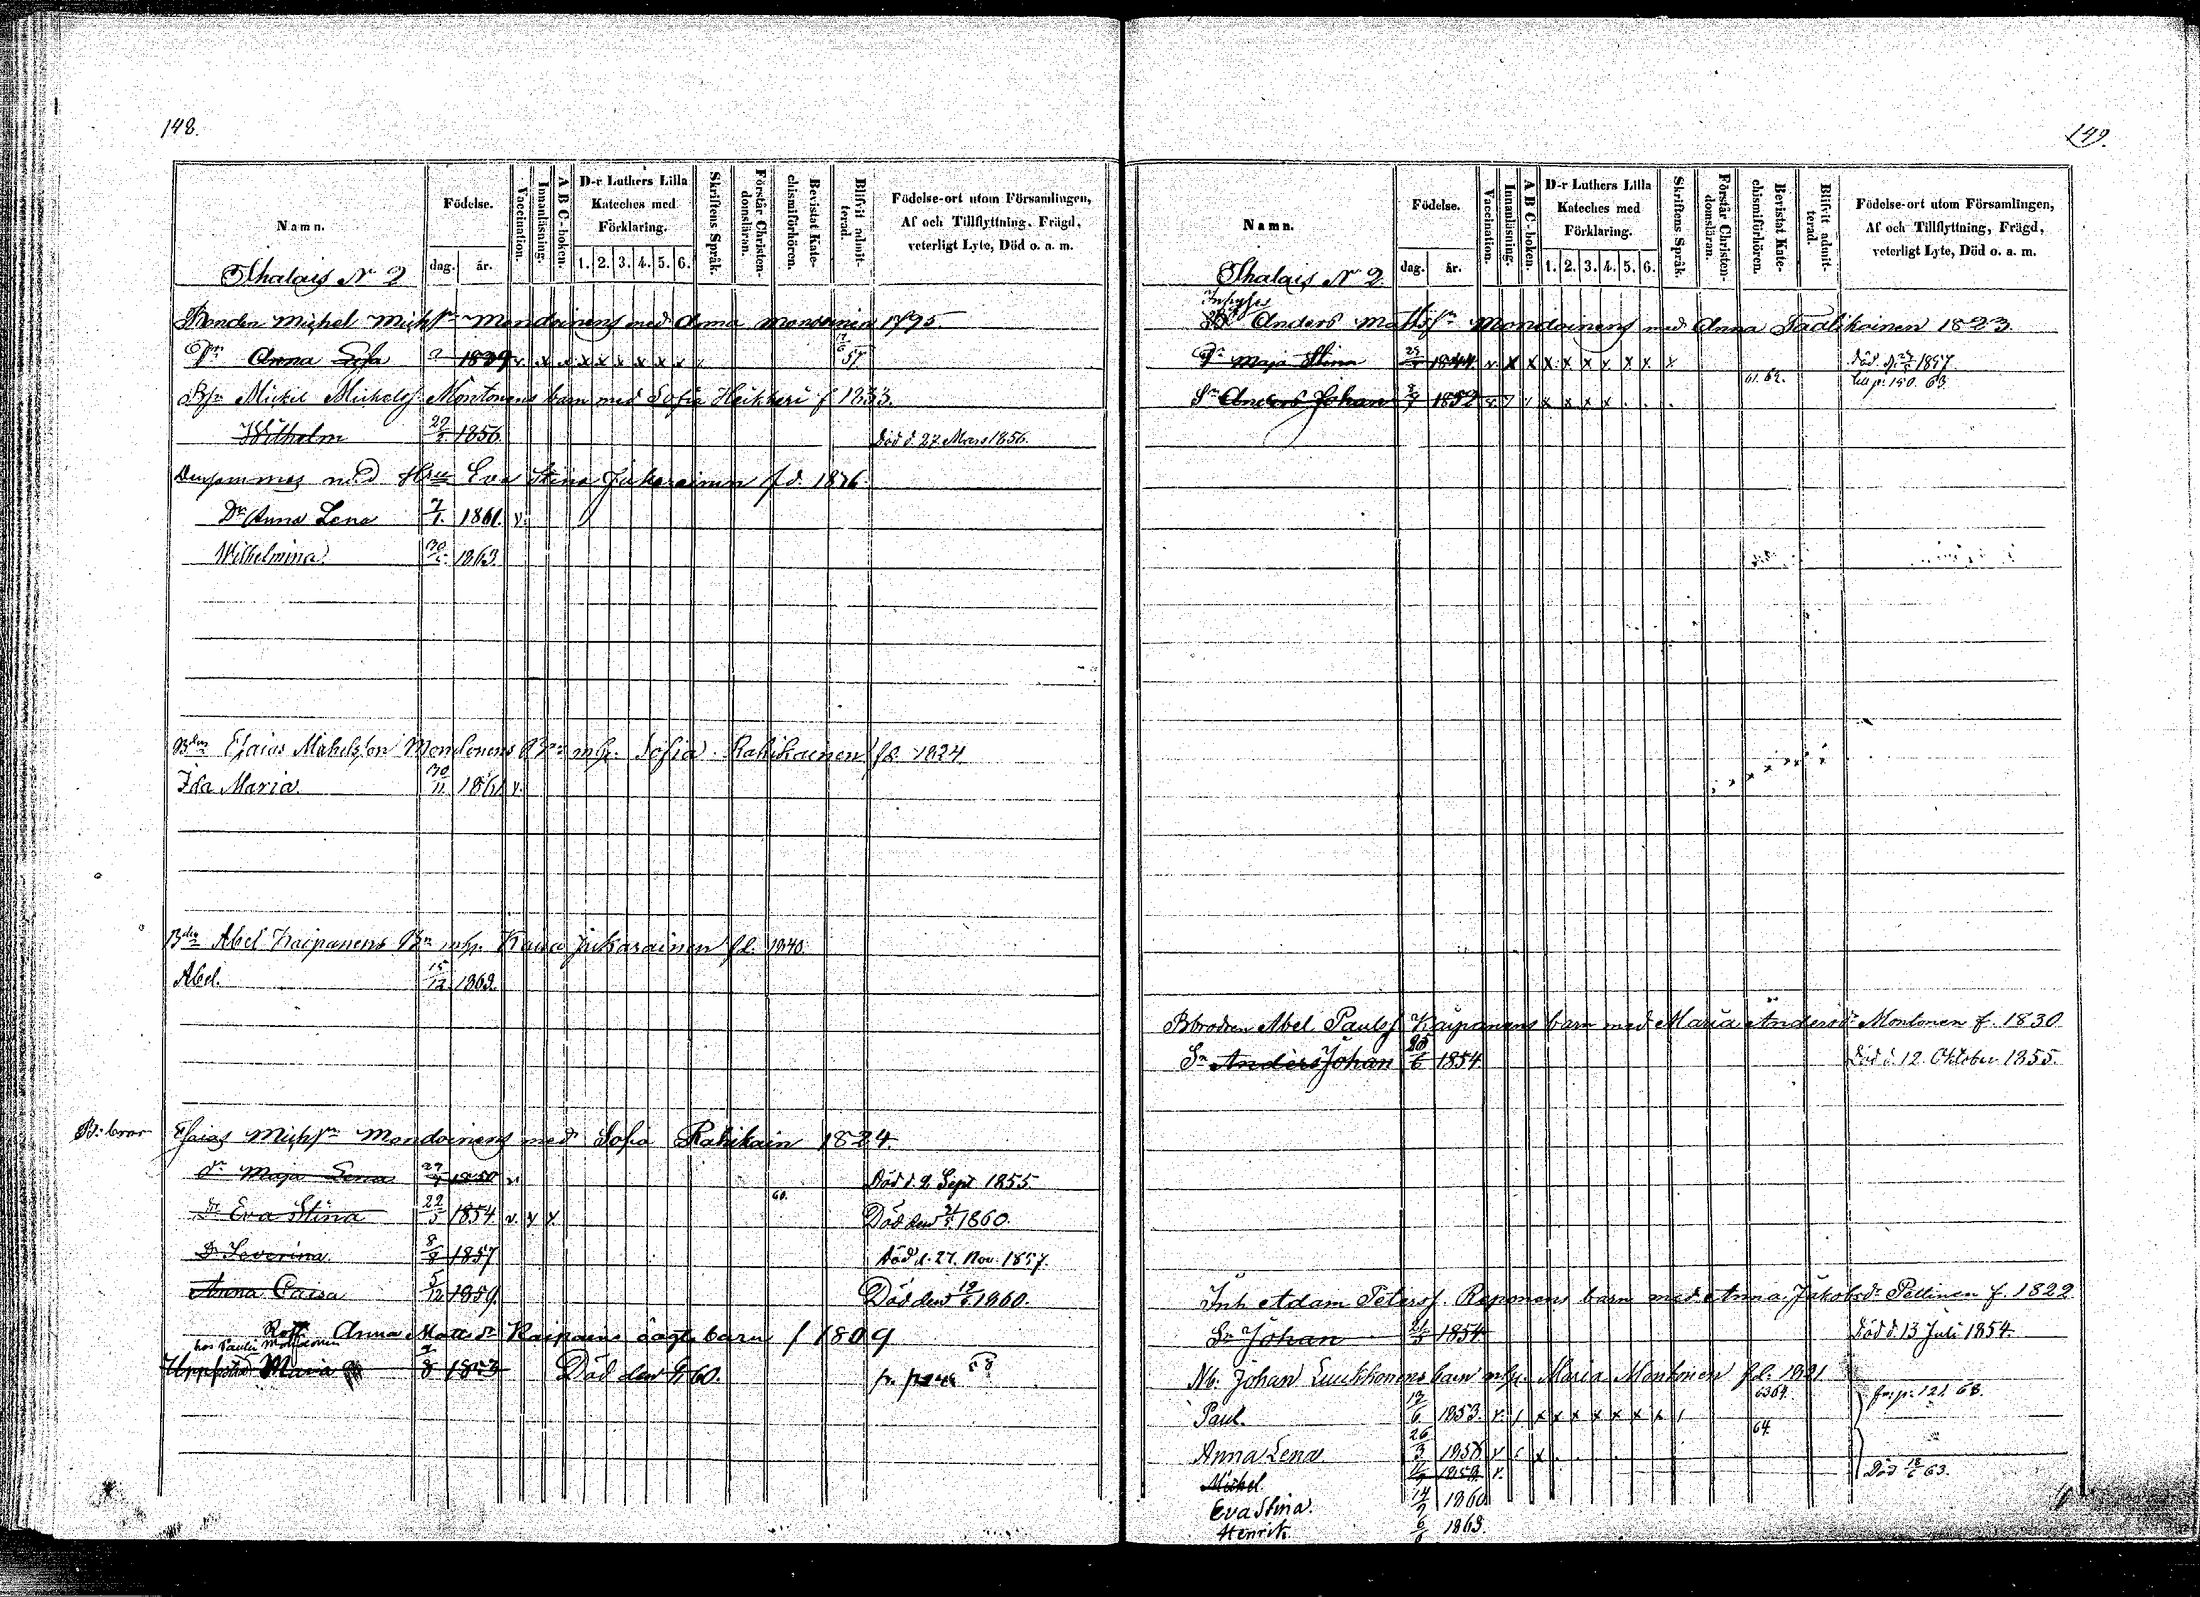 148.
Namn.
Födelse.
dag.
år.
Vaccination.
Innanläsning.
A B C-boken.
D-r Luthers Lilla
Kateches med
Förklaring.
1. 2. 3. 4. 5. 6.
Skriftens Språk.
Förstår Christen-
domsläran.
Bevistat Kate-
chismiförhören.
Blifvit admit-
terad.
Födelse-ort utom Församlingen,
Af och Tillflyttning, Frägd,
veterligt Lyte, Död o. a. m.
Ihalais N 2
Bonden Michel Michss Mondoinens med Anna Mondoinen 1795
Dr Anna Lisa 1839 v. x x x x x x x x 57
Mickel Michelss. Montonens barn med Sofia Heikkeri f 1833.
Wilhelm 1856 Död d. 27 Mars 1856.
Densammes med Hru Eva Stina Jukarainen fd. 18
Dr Anna Lena 7/1. 1861. v.
Wilhelmina 1863
Bdn Esaias Michelsson Montonens med h. Sofia Rahikainen fd. 1824
Ida Maria 30/11 1861 v.
Bdn Abel Kaipanens Bn mh. Kaisa Jukarainen fd. 1840.
Abel. 15/12 1863.
B: bror Esaias Michss Mondoinens med Sofia Rahikain 1824
dr Maja Lena 1850 v. Död d. 2 Sept 1855
Dr Eva Stina 22/5 1854 v. x x 60. Död den 1860.
Dr Severina 8/8 1857 Död d. 27. Nov. 1857.
Anna Caisa 5/12 1859. Död den 1860.
Anna Mattsdr Kaipains oägta barn f 1809
hos Paulu Montonen
Maria 8 1853 Död den 60. fr. p 58
149.
Namn.
Födelse.
dag.
år.
Vaccination.
Innanläsning.
A B C-boken.
D-r Luthers Lilla
Kateches med
Förklaring.
1. 2. 3. 4. 5. 6.
Skriftens Språk.
Förstår Christen-
domsläran.
Bevistat Kate-
chismiförhören.
Blifvit admit-
terad.
Födelse-ort utom Församlingen,
Af och Tillflyttning, Frägd,
veterligt Lyte, Död o. a. m.
Ihalais N 2
Inhyses
Anders Mattss Mondoinens med Anna Taalikainen 1823
Dr Maja Stina 1844 v. x x x x x x x x x Död d. 1857
Sn Anders Johan 1852 x x x x 61. 62. till p. 150. 63
Bbrodren Abel Paulss Kaipanens barn med Maria Andersdr Montonen f. 1830
Sn Anders Johan /6 1854 Död d. 12. Oktober 1855.
Inh Adam Peterss. Reponens barn med Anna Jakobsdr Pellinen f. 1822
Sn Johan 21/5 1854 Död d. 13 Juli 1854.
Nb. Johan Luukkonens barn mh. Maria Montonen fd. 1821
Paul. 6 1853. v. / x x x x x x x / 63 64. fr. p. 121. 63.
Anna Lena 26/3 1856 v x 64.
Mickel. 1859 v. Död 63.
Eva Stina. 1860
Henrik 6/6 1863.